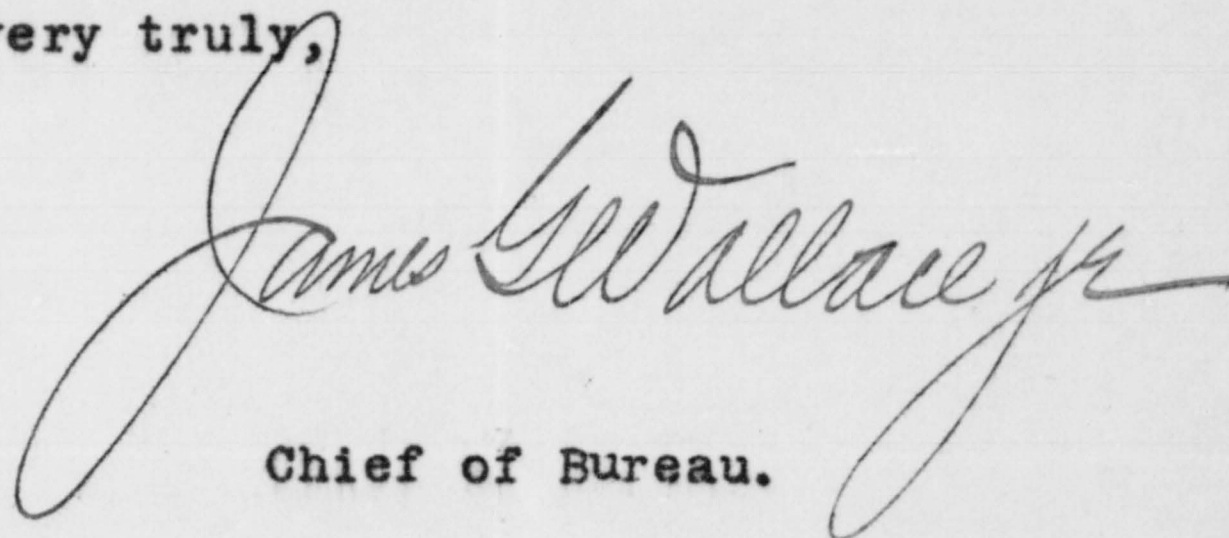 very truly,
James G Wallace jr
Chief of Bureau.